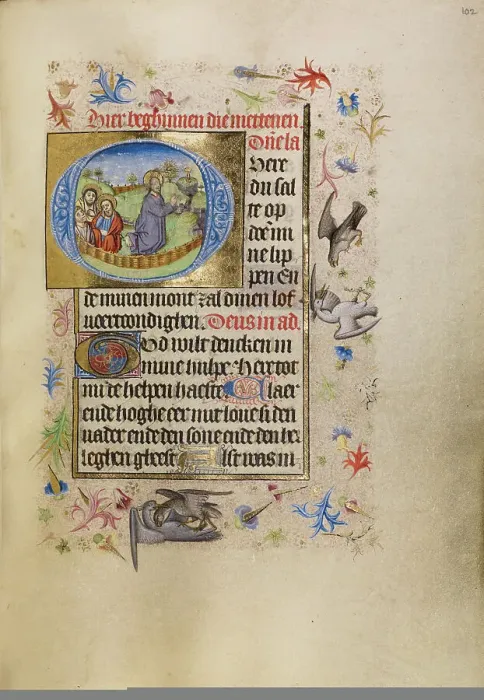 102
Hier beghinnen die mettenen.
Dn̄e la
Here
du sal
te op
doē mi
ne lip
pen En
de minen mont zal dinen lof
voertcondighen. Deus in ad.
God wilt dencken in
mine hulpe. Here tot
mi te helpen haeste Glaer
ende hoghe eer mit loue si den
vader ende den sone ende den he
leghen gheest Alst was in